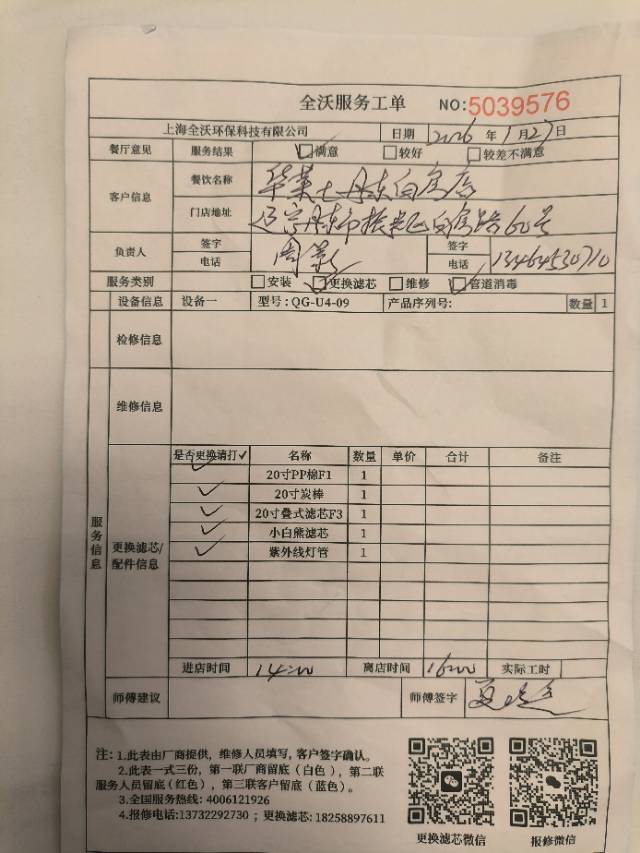 全沃服务工单 NO:5039576
上海全沃环保科技有限公司 日期 2026 年 1 月 27 日
餐厅意见 服务结果 满意 较好 较差不满意
客户信息 餐饮名称 华莱士丹东白房店
门店地址 辽宁丹东市振兴区白房路60号
负责人 签字 周 签字
电话 电话 13464530710
服务类别 安装 更换滤芯 维修 管道消毒
设备信息 设备一 型号:QG-U4-09 产品序列号: 数量 1
检修信息
维修信息
服务信息
更换滤芯/配件信息
是否更换请打✓ 名称 数量 单价 合计 备注
✓ 20寸PP棉F1 1
✓ 20寸炭棒 1
✓ 20寸叠式滤芯F3 1
✓ 小白熊滤芯 1
✓ 紫外线灯管 1
进店时间 14:00 离店时间 16:00 实际工时
师傅建议 师傅签字
注: 1.此表由厂商提供, 维修人员填写, 客户签字确认。
2.此表一式三份, 第一联厂商留底 (白色), 第二联
服务人员留底(红色), 第三联客户留底 (蓝色)。
3.全国服务热线: 4006121926
4.报修电话:13732292730 ; 更换滤芯: 18258897611
更换滤芯微信 报修微信